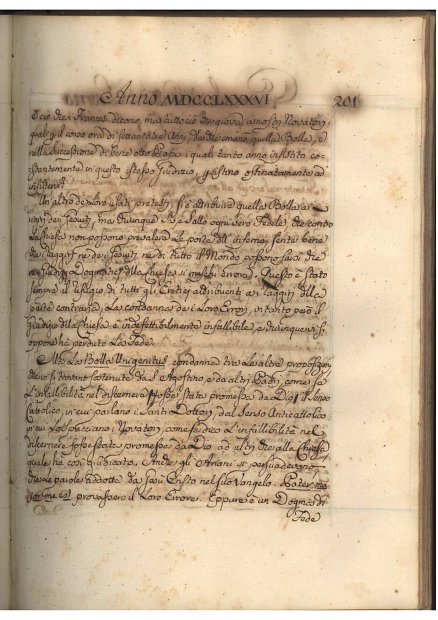 Anno MDCCLXXXVI 201
e ciò dica Francesi dicono, ma tutto ciò che giova a nostri Novatori,
quali gia il corso ora di settanta tre Anni, da che emanò quella Bolla, e
nella Successione di bene otto Papi i quali tanto anno insistito co-
stantemente in questo stesso giudizio, ostinatamente ad
Un'altro de loro usati pretesti, si è attribuire quella Bolla a
Gesuiti, ma chiunque Sa e Sallo ogni vero Fedele che contro
la Chiesa non possono prevalere Le porte dell'inferno, sente bene
che i raggiri ne dei Gesuiti, ne di tutto il Mondo possono fare che
Dogmatici della Chiesa si nascosti Errori. Questo è stato
sempre il rifugio di tutti gli Eretici attribuenti ai raggiri della
parte contraria, La condanna dei Loro Errori, intanto però il
giudizio della Chiesa è indefettibilmente infallibile, e chiunque vi si
oppone ha perduto La Fede.
Ma La Bolla Unigenitus condanna tra Le altre proposizioni
che vi si trovano sostenute da S. Agostino, e da altri Padri, come se
L'infallibilità nel discernere fosse stata promessa da Dio il Senso
Cattolico, in cui parlano i Santi Dottori, dal Senso Anticattolico
in cui spacciano Novatori, come se L'infallibilità nel
discernere fosse stata promessa da Dio ad altri che alla Chiesa
quale ha così giudicato. Anche gli Ariani si persuadevano
che parole addotte da Gesù Cristo nel suo Vangelo: Pater ma
jor me est provassero il Loro Errore. Eppure è un Dogma di
Fede